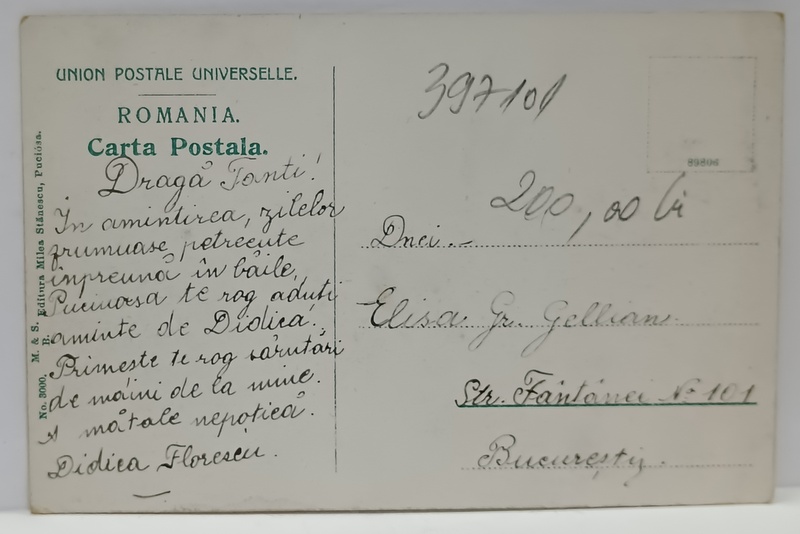 UNION POSTALE UNIVERSELLE.
ROMANIA.
Carta Postala.
No. 3000. M. & S. B. Editura Milea Stănescu, Puciósa.
Dragă Tanti!
În amintirea, zilelor
frumuase petrecute
înpreună în băile,
Puciuasa te rog aduți
aminte de Didica.
Primește te rog sărutări
de mâini de la mine.
A mătale nepotică.
Didica Florescu.
397101
89806
200,00 li
Dnei.
Elisa Gr. Gellian
Str. Fântânei No 101
București.